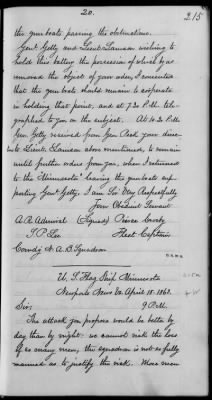 20.
215
the gun boats passing the obstructions.
Genl. Getty and Lieut. Lamson wishing to
hold this battery the possession of which by us
removed the object of your order, I consented
that the gun boats should remain to cooperate
in holding that point, and at 7.30 P.M. tele-
graphed to you on the subject. At 10.30 P.M.
Gen. Getty received from Gen. Peck your direc-
tions to Lieut. Lamson above mentioned, to remain
until further orders from you, when I returned
to the "Minnesota" leaving the gun boats sup-
porting Genl. Getty. I am Sir Very Respectfully
Your Obedient Servant
A. R. Admiral (Signed) Peirce Crosby
S. P. Lee Fleet Captain
Comdg N. A. B. Squadron
U. S. Flag Ship Minnesota
Newport News Va. April 18. 1863.
Sir; 9 P.M.
The attack you propose would be better by
day than by night. we cannot risk the loss
of so many men, the squadron is not so fully
manned as to justify the risk. More men